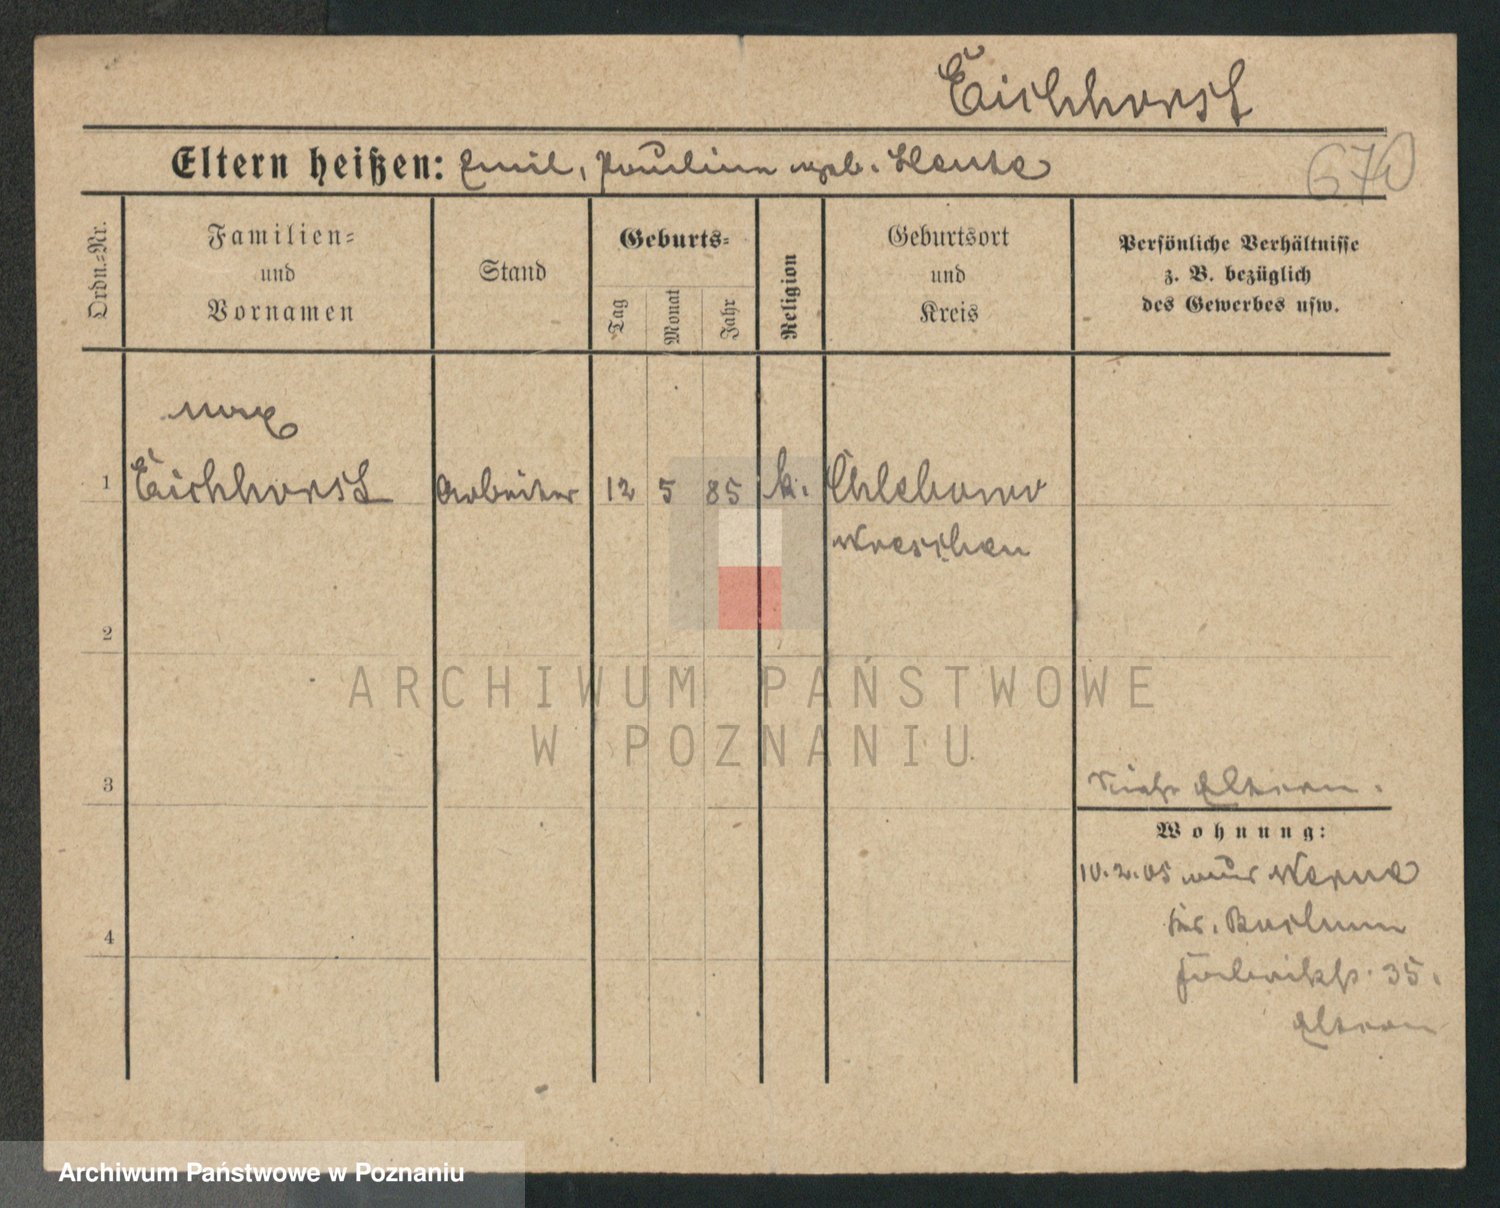 Eichhorst
Eltern heißen: Emil, Pauline geb. Hentse
670
Ordn.-Nr.
Familien-
und
Vornamen
Stand
Geburts-
Tag
Monat
Jahr
Religion
Geburtsort
und
Kreis
Persönliche Verhältnisse
z. B. bezüglich
des Gewerbes usw.
Max
1 Eichhorst Arbeiter 12 5 85 k. Chlebowo
Wreschen
2
3
Siehe Eltern.
Wohnung:
10.2.05 nach Werne
Krs. Bochum
4
Fabrikstr. 35.
Eltern
ARCHIWUM PAŃSTWOWE
W POZNANIU
Archiwum Państwowe w Poznaniu